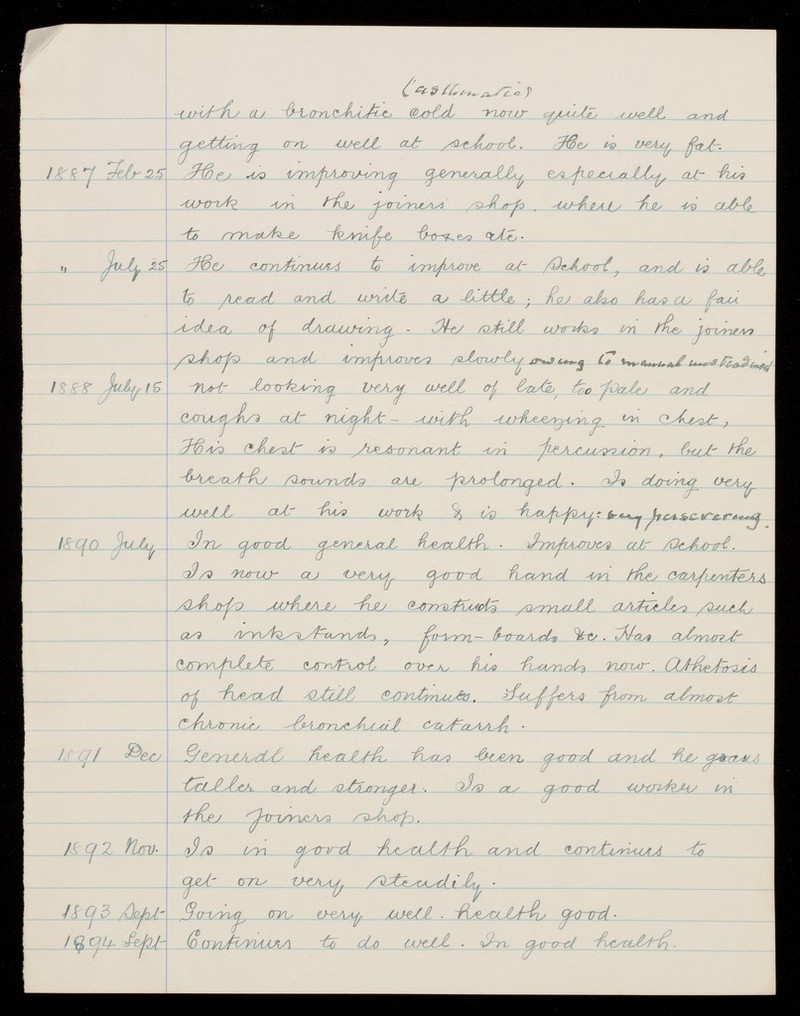 (asthmatic)
with a bronchitic cold now quite well and
getting on well at school. He is very fat.
1887 Feb 25 He is improving generally especially at his
work in the joiners shop. where he is able
to make knife boxes etc.
" July 25 He continues to improve at School, and is able
to read and write a little; he also has a fair
idea of drawing - He still works in the joiners
shop and improves slowly owing to manual
1888 July 15 not looking very well of late, too pale and
coughs at night - with wheezing in chest,
His chest is resonant in percussion, but the
breath sounds are prolonged. Is doing very
well at his work & is happy: very persevering.
1890 July In good general health. Improves at School.
Is now a very good hand in the carpenters
shop where he constructs small articles such
as inkstands, form-boards &c. Has almost
complete control over his hands now. Athetosis
of head still continues. Suffers from almost
chronic bronchial catarrh.
1891 Dec General health has been good and he grows
taller and stronger. Is a good worker in
the joiners shop.
1892 Nov. Is in good health and continues to
get on very steadily.
1893 Sept Going on very well. health good.
1894 Sept Continues to do well. In good health.